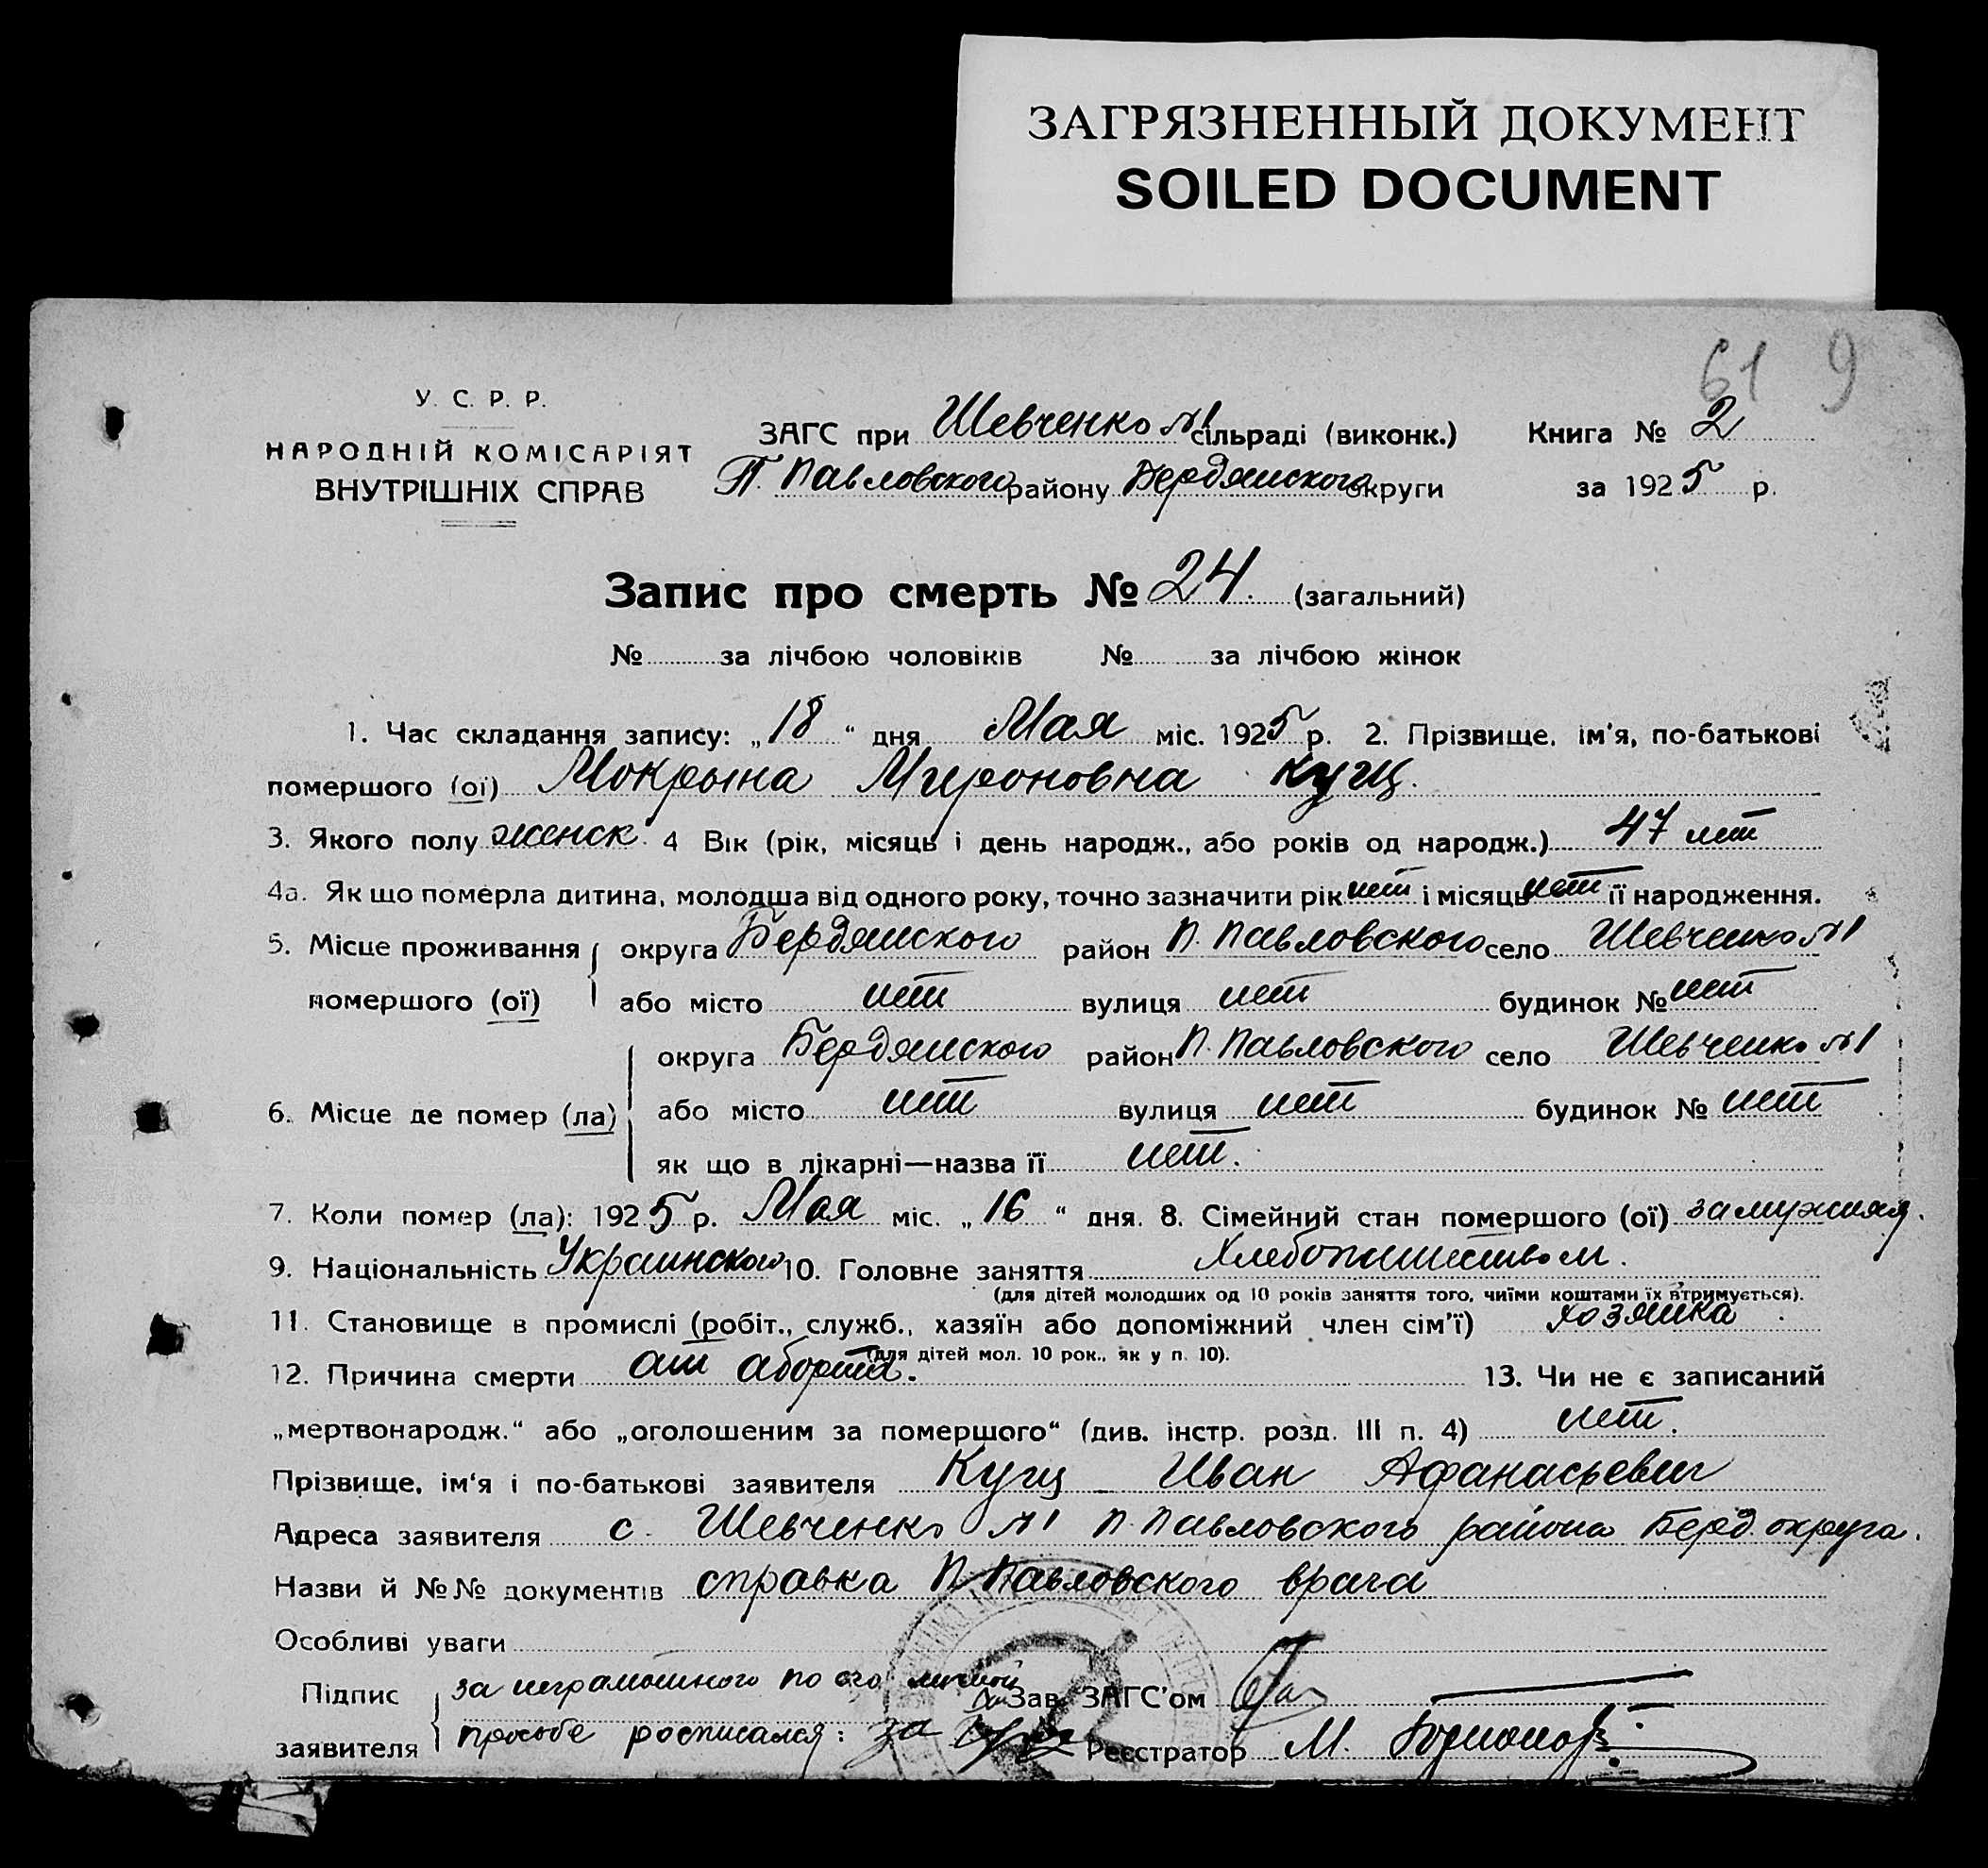 ЗАГРЯЗНЕННЫЙ ДОКУМЕНТ
SOILED DOCUMENT
61 9
У. С. Р. Р.
НАРОДНІЙ КОМІСАРІЯТ
ВНУТРІШНІХ СПРАВ
ЗАГС при Шевченко №1 сільраді (виконк.) Книга № 2
П. Павловского району Бердянского округи за 1925 р.
Запис про смерть № 24. (загальний)
№ за лічбою чоловіків № за лічбою жінок
1. Час складання запису: „18“ дня Мая міс. 1925 р. 2. Прізвище, ім'я, по-батькові
помершого (ої) Мокрына Мироновна Куц.
3. Якого полу женск. 4 Вік (рік, місяць і день народж., або років од народж.) 47 лет
4а. Як що померла дитина, молодша від одного року, точно зазначити рік нет і місяць нет її народження.
5. Місце проживання округа Бердянского район П. Павловского село Шевченко №1
помершого (ої) або місто нет вулиця нет будинок № нет
округа Бердянского район П. Павловского село Шевченко №1
6. Місце де помер (ла) або місто нет вулиця нет будинок № нет
як що в лікарні—назва її нет.
7. Коли помер (ла): 1925 р. Мая міс. „16“ дня. 8. Сімейний стан помершого (ої) замужняя.
9. Національність Украинского 10. Головне заняття Хлебопашеством.
(для дітей молодших од 10 років заняття того, чиїми коштами їх втримується).
11. Становище в промислі (робіт., служб., хазяїн або допоміжний член сім'ї) хозяйка.
(для дітей мол. 10 рок., як у п. 10).
12. Причина смерти от аборта. 13. Чи не є записаний
„мертвонародж.“ або „оголошеним за помершого“ (див. інстр. розд. III п. 4) нет.
Прізвище, ім'я і по-батькові заявителя Куц Иван Афанасьевич
Адреса заявителя с. Шевченко №1 П. Павловского района Берд. округа.
Назви й №№ документів справка П. Павловского врача
Особливі уваги
Підпис за неграмотного по его личной Зав. ЗАГС'ом
заявителя просьбе росписался: за Реєстратор М.